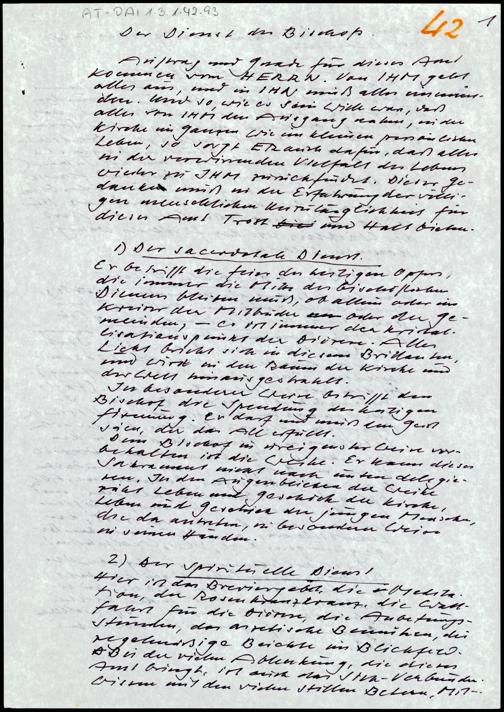 AT-DAI 1.3.1.42.93
42
1
Der Dienst des Bischofs.
Auftrag und Gnade für dieses Amt
kommen vom HERRN. Von IHM geht
alles aus, und in IHN muß alles einmün-
den. Und so, wie es Sein Wille war, daß
alles von IHM den Ausgang nahm, in der
Kirche im ganzen wie im kleinen persönlichen
Leben, so sorgt ER auch dafür, daß alles
in der verwirrenden Vielfalt des Lebens
wieder zu IHM zurückfindet. Dieser Ge-
danke muß in der Erfahrung der völli-
gen menschlichen Unzulänglichkeit für
dieses Amt Trost und Halt bieten.
1) Der sacerdotale Dienst.
Er betrifft die Feier des heiligen Opfers,
die immer die Mitte des bischöflichen
Dienens bleiben muß, ob allein oder im
Kreise der Mitbrüder oder der Ge-
meinden, – es ist immer der Kristal-
lisationspunkt der Diözese. Alles
Licht bricht sich in diesem Brillanten,
und wird in den Raum der Kirche und
der Welt hinausgestrahlt.
In besonderer Weise betrifft den
Bischof die Spendung der heiligen
Firmung. Er darf und muß den Geist
, der das All erfüllt.
Dem Bischof in ureigenster Weise vor-
behalten ist die Weihe. Er kann dieses
Sakrament nicht nach unten delegie-
ren. In den Augenblicken der Weihe
ruht Leben und Geschick der Kirche,
Leben und Geschick der jungen Menschen,
die da antreten, in besonderer Weise
in seinen Händen.
2) Der spirituelle Dienst
Hier ist das Breviergebet, die Medita-
tion, der Rosenkranz, die Wall-
fahrt für die Diözese, die Anbetungs-
stunden, das asketische Bemühen, die
regelmäßige Beichte im Blickfeld.
Bei der vielen Ablenkung, die dieses
Amt bringt, ist auch das Sich-Verbunden-
Wissen mit den vielen stillen Betern, Mit-